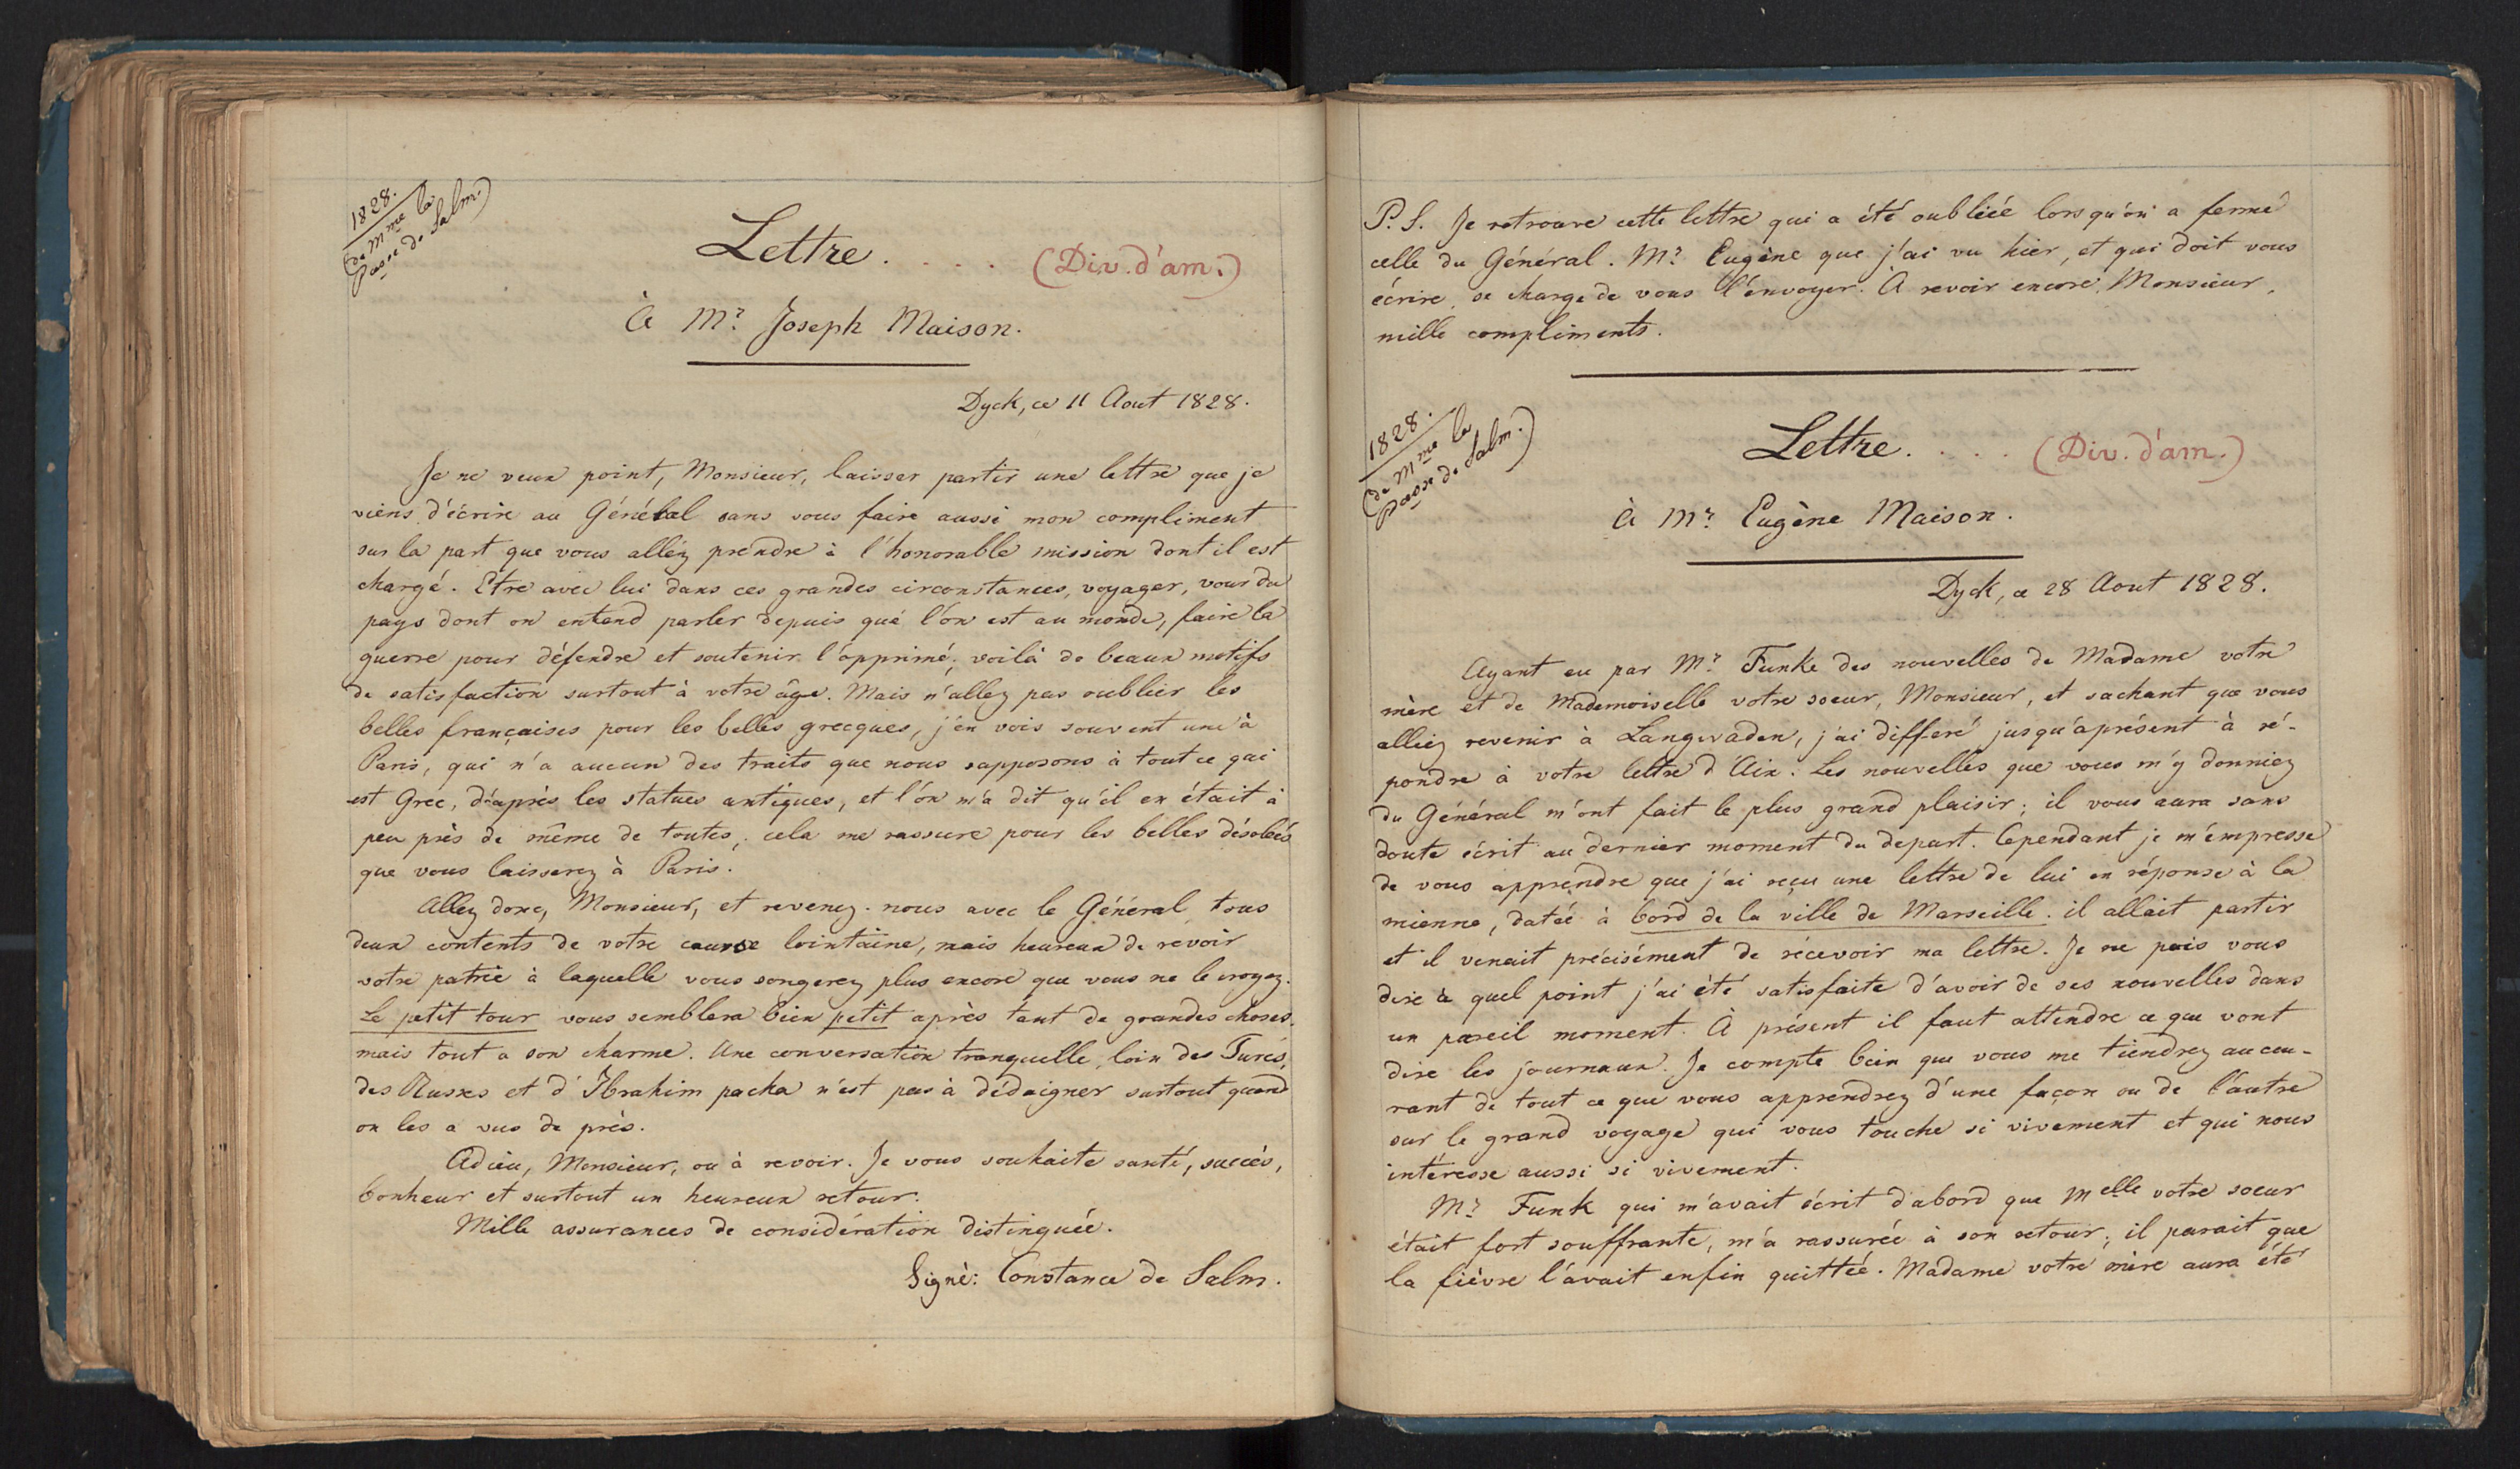 1828.
(de Mme la
Passe de Salm.)
Lettre. . . . (Div. d'am.)
À Mr. Joseph Maison.
Dyck, ce 11 Aout 1828.
Je ne veux point, Monsieur, laisser partir une lettre que je
viens d'écrire au Général sans vous faire aussi mon compliment
sur la part que vous allez prendre à l'honorable mission dont il est
chargé. Etre avec lui dans ces grandes circonstances, voyager, vour du
pays dont on entend parler depuis que l'on est au monde, faire la
guerre pour défendre et soutenir l'opprimé; voilà de beaux motifs
de satisfaction surtout à votre âge. Mais n'allez pas oublier les
belles françaises pour les belles grecques, j'en vois souvent une à
Paris, qui n'a aucun des traits que nous supposons à tout ce qui
est Grec, d'après les statues antiques, et l'on m'a dit qu'il en était à
peu près de même de toutes; cela me rassure pour les belles désolées
que vous laisserez à Paris.
Allez donc, Monsieur, et revenez-nous avec le Général tous
deux contents de votre course lointaine, mais heureux de revoir
votre patrie à laquelle vous songerez plus encore que vous ne le croyez.
Le petit tour vous semblera bien petit après tant de grandes choses.
mais tout a son charme. Une conversation tranquelle, loin des Turcs,
des Russes et d'Ibrahim pacha n'est pas à dédaigner surtout quand
on les a vus de près.
Adieu, Monsieur, ou à revoir. Je vous souhaite santé, succès,
bonheur et surtout un heureux retour.
Mille assurances de considération distinguée.
Signé: Constance de Salm.
P. S. Je retrouve cette lettre qui a été oubliée lorsqu'on a fermé
celle du Général. Mr. Eugène que j'ai vu hier, et qui doit vous
écrire, se charge de vous l'envoyer. À revoir encore, Monsieur,
mille compliments.
1828.
(de Mme la
Passe de Salm.)
Lettre. . . . (Div. d'am.)
À Mr. Eugène Maison.
Dyck, ce 28 Aout 1828.
Ayant eu par Mr. Funke des nouvelles de Madame votre
mère et de Mademoiselle votre soeur, Monsieur, et sachant que vous
alliez revenir à Langwaden, j'ai différé jusqu'àprésent à ré-
pondre à votre lettre d'Aix. Les nouvelles que vous m'y donniez
du Général m'ont fait le plus grand plaisir; il vous aura sans
doute écrit au dernier moment du depart. Cependant je m'empresse
de vous apprendre que j'ai reçu une lettre de lui en réponse à la
mienne, datée à bord de la ville de Marseille. il allait partir
et il venait précisément de récevoir ma lettre. Je ne puis vous
dire à quel point j'ai été satisfaite d'avoir de ses nouvelles dans
un pareil moment. À présent il faut attendre ce que vont
dire les journaux. Je compte bien que vous me tiendrez au cou-
rant de tout ce que vous apprendrez d'une façon ou de l'autre
sur le grand voyage qui vous touche si vivement et qui nous
intéresse aussi si vivement.
Mr. Funk qui m'avait écrit d'abord que Melle votre soeur
était fort souffrante, m'a rassurée à son retour; il parait que
la fièvre l'avait enfin quittée. Madame votre mère aura été